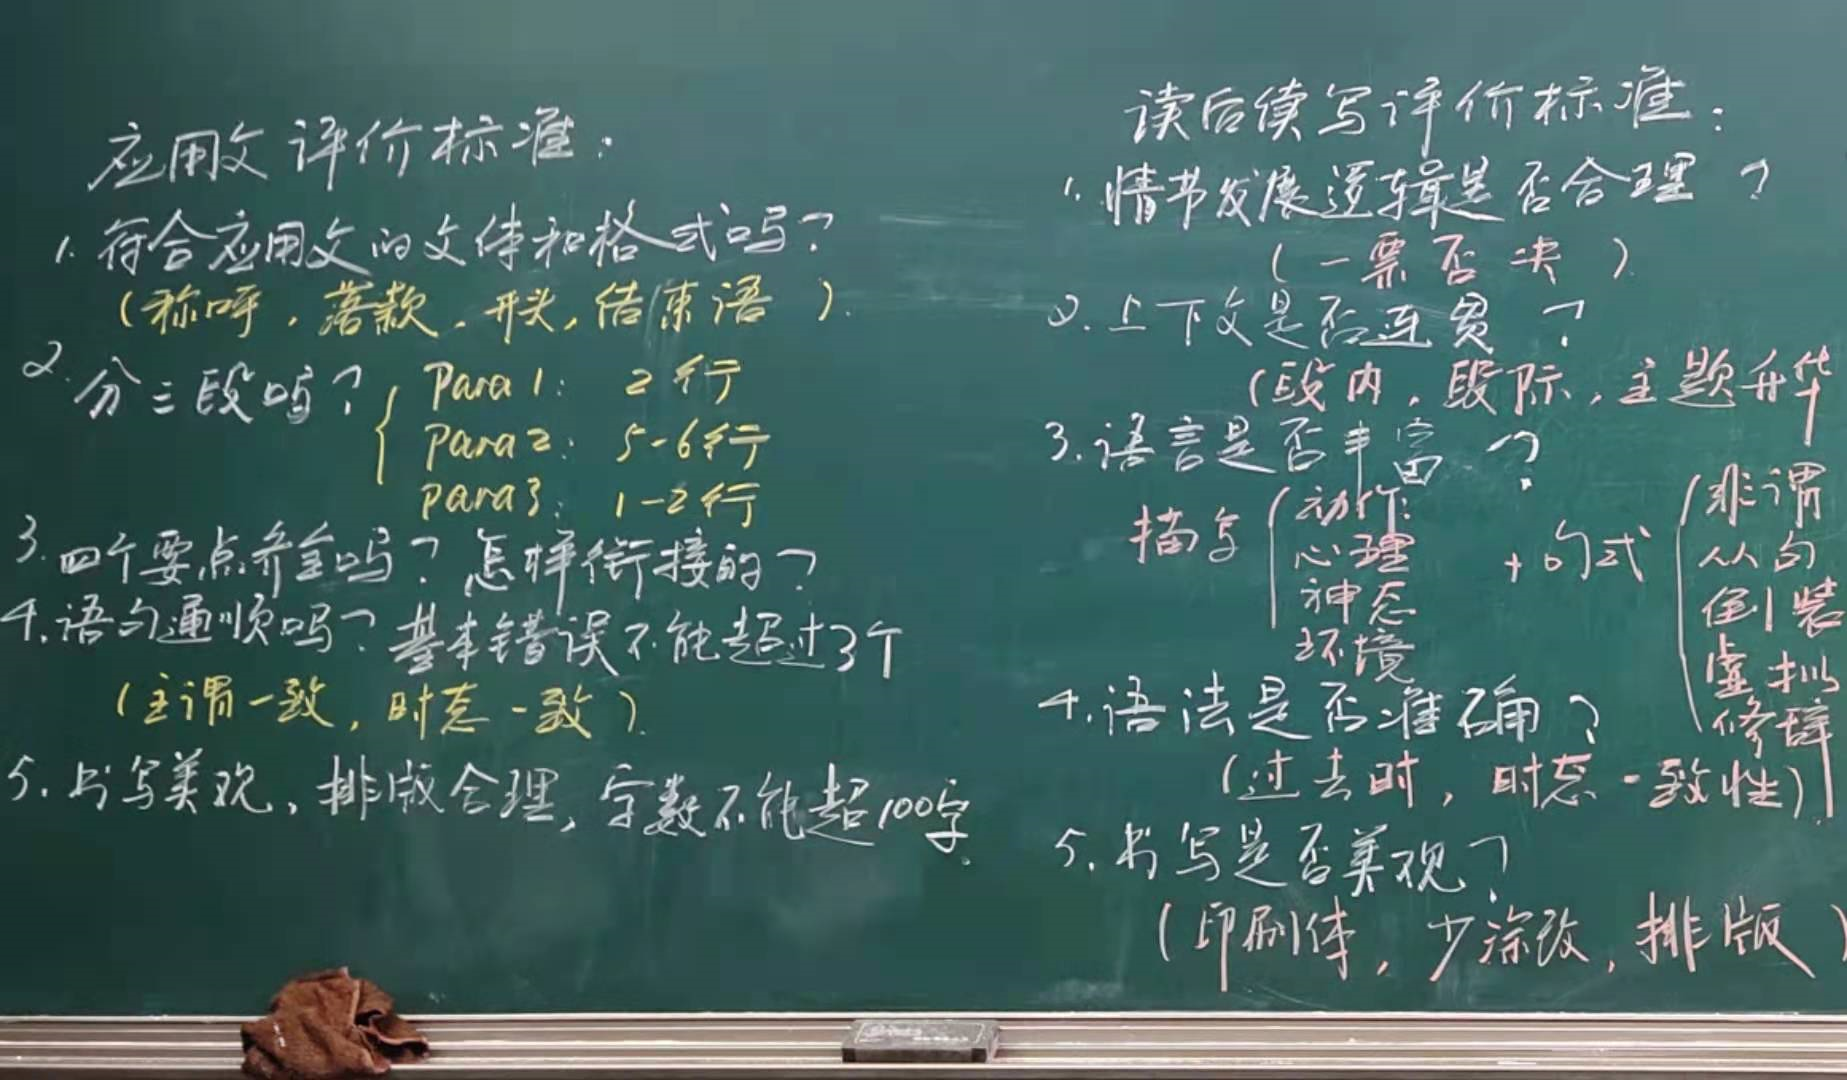 应用文评价标准:
1. 符合应用文的文体和格式吗?
(称呼,落款,开头,结束语)
2. 分三段吗?
Para 1: 2行
Para 2: 5-6行
Para 3: 1-2行
3. 四个要点齐全吗?怎样衔接的?
4. 语句通顺吗?基本错误不能超过3个
(主谓一致,时态一致)
5. 书写美观,排版合理,字数不能超100字.
读后续写评价标准:
1. 情节发展逻辑是否合理?
(一票否决)
2. 上下文是否连贯?
(段内,段际,主题升华
3. 语言是否丰富?
描写
动作
心理
神态
环境
+句式
非谓
从句
倒装
虚拟
修辞
4. 语法是否准确?
(过去时,时态一致性)
5. 书写是否美观?
(印刷体,少涂改,排版)